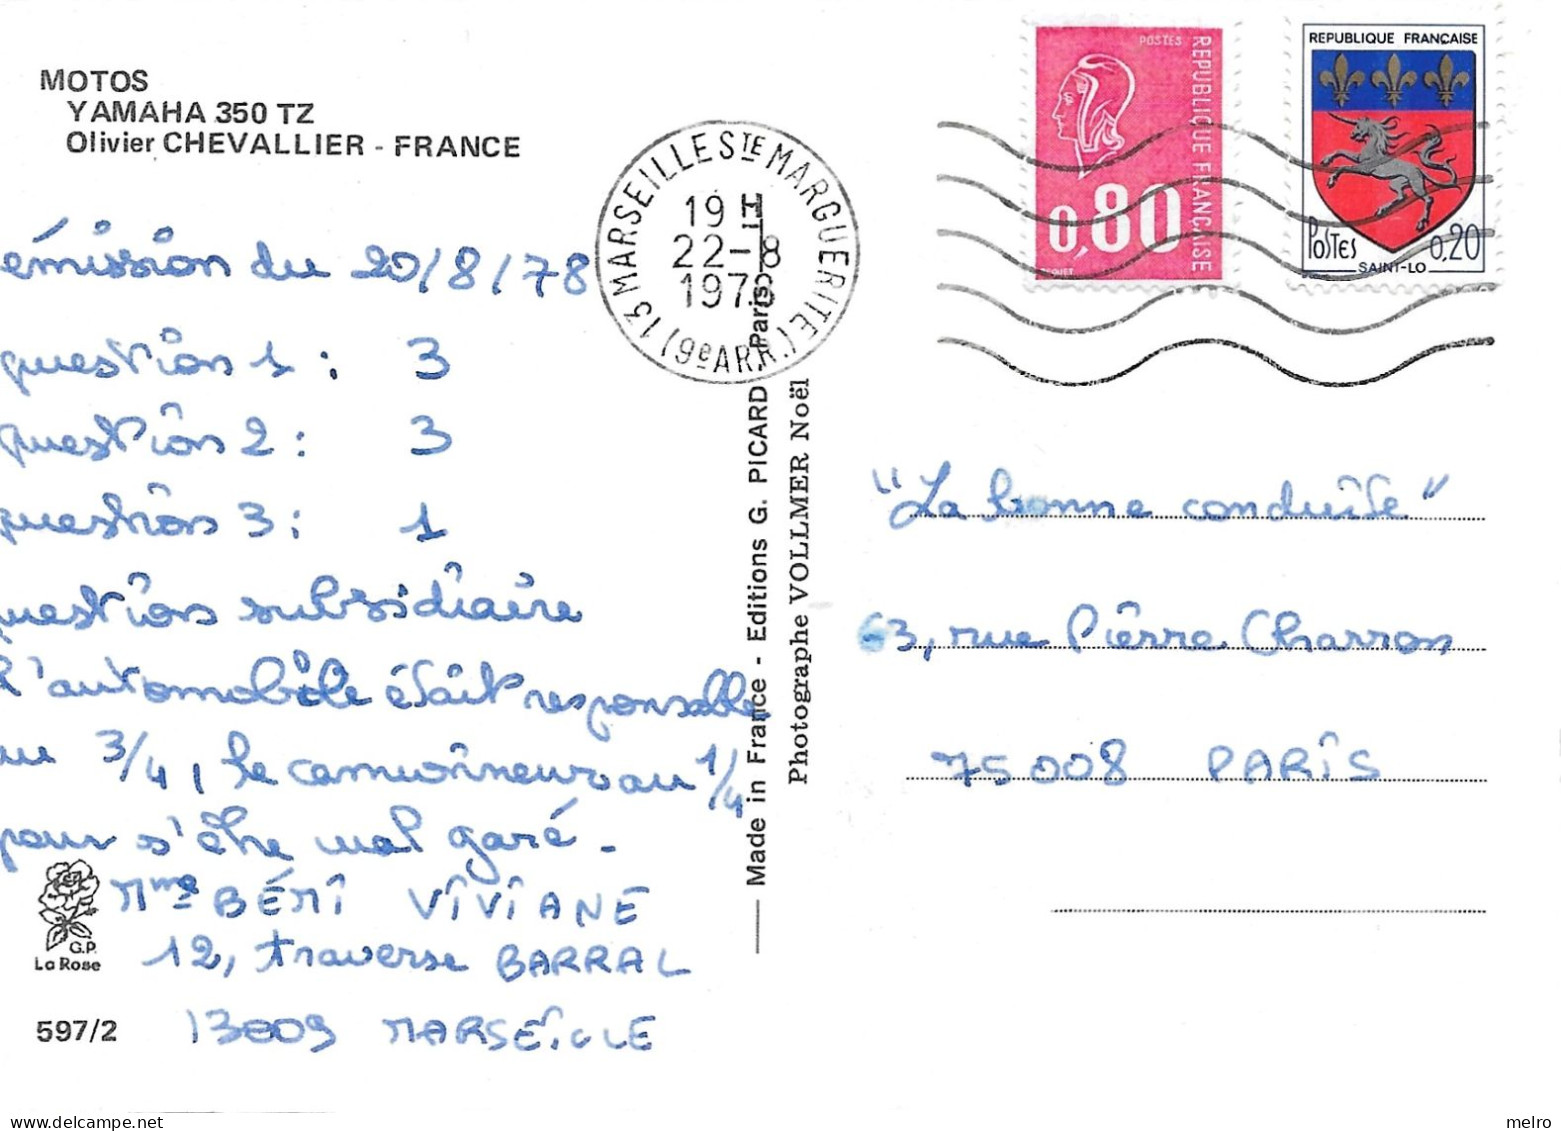 MOTOS
YAMAHA 350 TZ
Olivier CHEVALLIER - FRANCE
émission du 20/8/78
question 1 : 3
question 2 : 3
question 3 : 1
uestion subsidiaire
L'automobile était responsable
au 3/4, le camionneur au 1/4
pour s'être mal garé.
Mme BÉMI VIVIANE
12, traverse BARRAL
13009 MARSEILLE
G.P.
La Rose
597/2
13 MARSEILLE STE MARGUERITE (9e ARR.)
19 H
22-8
1978
Made in France - Editions G. PICARD Paris
Photographe VOLLMER Noël
POSTES
REPUBLIQUE FRANÇAISE
0,80
REPUBLIQUE FRANÇAISE
POSTES 0,20
SAINT-LO
"La bonne conduite"
63, rue Pierre Charron
75008 PARIS
melro